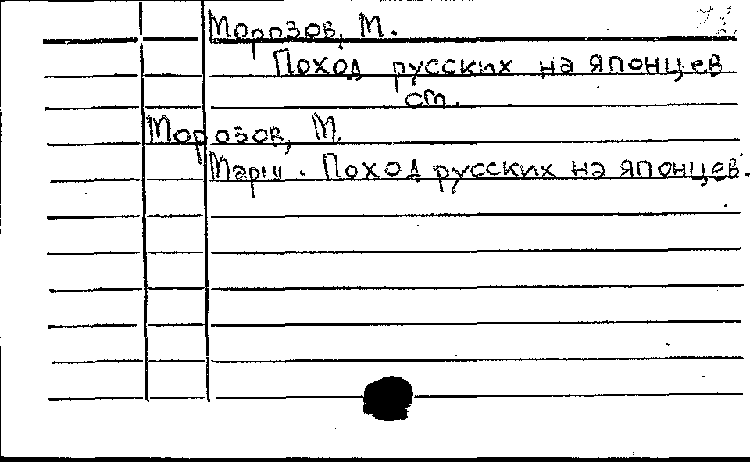 Морозов, М.
Поход русских на японцев
ст.
Морозов, М.
Марш. Поход русских на японцев.